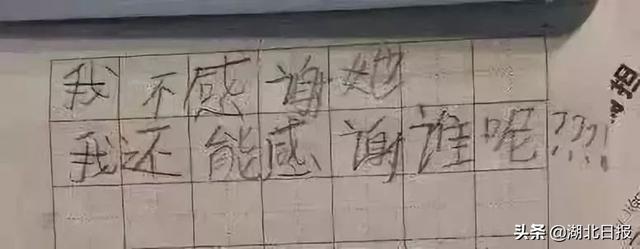 我不感谢她
我还能感谢谁呢????!
担
头条 @湖北日报